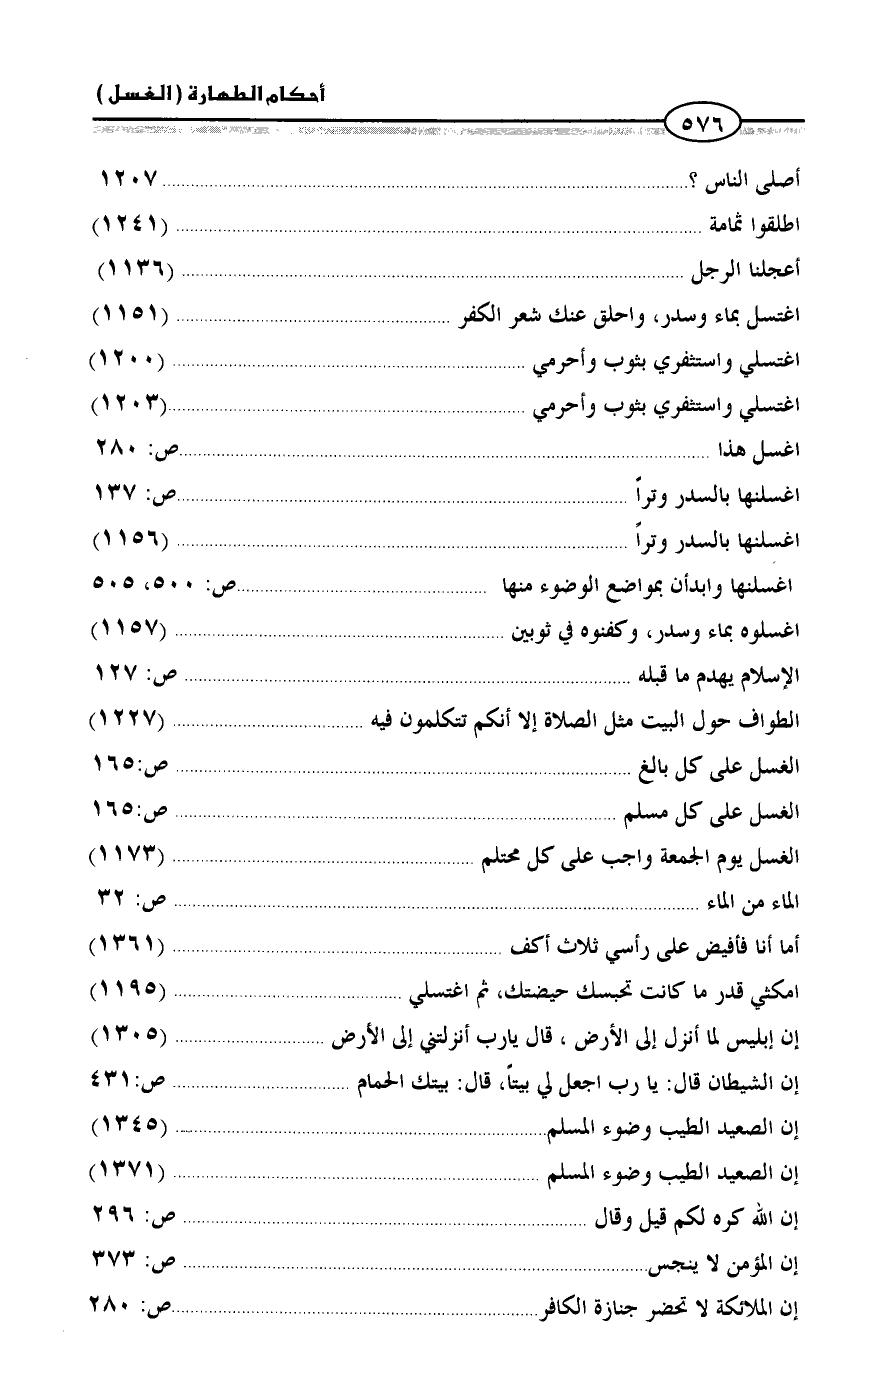 أحكام الطهارة (الغسل)
٥٧٦
أصلى الناس ؟ ..... ١٢٠٧
اطلقوا ثمامة ..... (١٢٤١)
أعجلنا الرجل ..... (١١٣٦)
اغتسل بماء وسدر، واحلق عنك شعر الكفر ..... (١١٥١)
اغتسلي واستثفري بثوب وأحرمي ..... (١٢٠٠)
اغتسلي واستثفري بثوب وأحرمي ..... (١٢٠٣)
اغسل هذا ..... ص: ٢٨٠
اغسلنها بالسدر وتراً ..... ص: ١٣٧
اغسلنها بالسدر وتراً ..... (١١٥٦)
اغسلنها وابدأن بمواضع الوضوء منها ..... ص: ٥٠٠، ٥٠٥
اغسلوه بماء وسدر، وكفنوه في ثوبين ..... (١١٥٧)
الإسلام يهدم ما قبله ..... ص: ١٢٧
الطواف حول البيت مثل الصلاة إلا أنكم تتكلمون فيه ..... (١٢٢٧)
الغسل على كل بالغ ..... ص:١٦٥
الغسل على كل مسلم ..... ص:١٦٥
الغسل يوم الجمعة واجب على كل محتلم ..... (١١٧٣)
الماء من الماء ..... ص: ٣٢
أما أنا فأفيض على رأسي ثلاث أكف ..... (١٣٦١)
امكثي قدر ما كانت تحبسك حيضتك، ثم اغتسلي ..... (١١٩٥)
إن إبليس لما أنزل إلى الأرض ، قال يارب أنزلتني إلى الأرض ..... (١٣٠٥)
إن الشيطان قال: يا رب اجعل لي بيتاً، قال: بيتك الحمام ..... ص:٤٣١
إن الصعيد الطيب وضوء المسلم ..... (١٣٤٥)
إن الصعيد الطيب وضوء المسلم ..... (١٣٧١)
إن الله كره لكم قيل وقال ..... ص: ٢٩٦
إن المؤمن لا ينجس ..... ص: ٣٧٣
إن الملائكة لا تحضر جنازة الكافر ..... ص: ٢٨٠